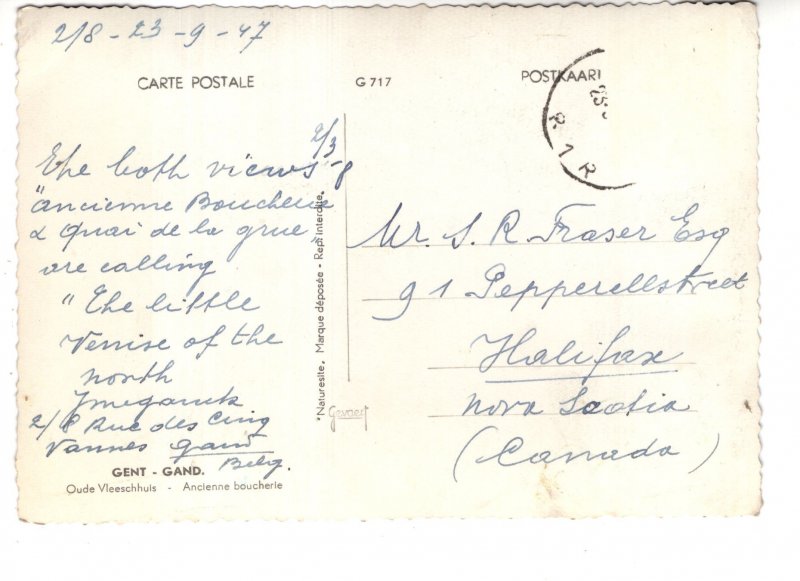 2/8 - 23 - 9 - 47
CARTE POSTALE
G 717
POSTKAAR
25
R. 1 R
2/3
The both views
"ancienne Boucherie
& Quai de la grue"
are calling
"The little
Venise of the
north
2/8 Rue des Cinq
Vannes Gand
Belg.
GENT - GAND.
Oude Vleeschhuis - Ancienne boucherie
"Naturesite. Marque déposée - Repr. interdite.
Gevaert
Mr. S. R. Fraser Esq
91 Pepperellstreet
Halifax
Nova Scotia
(Canada)